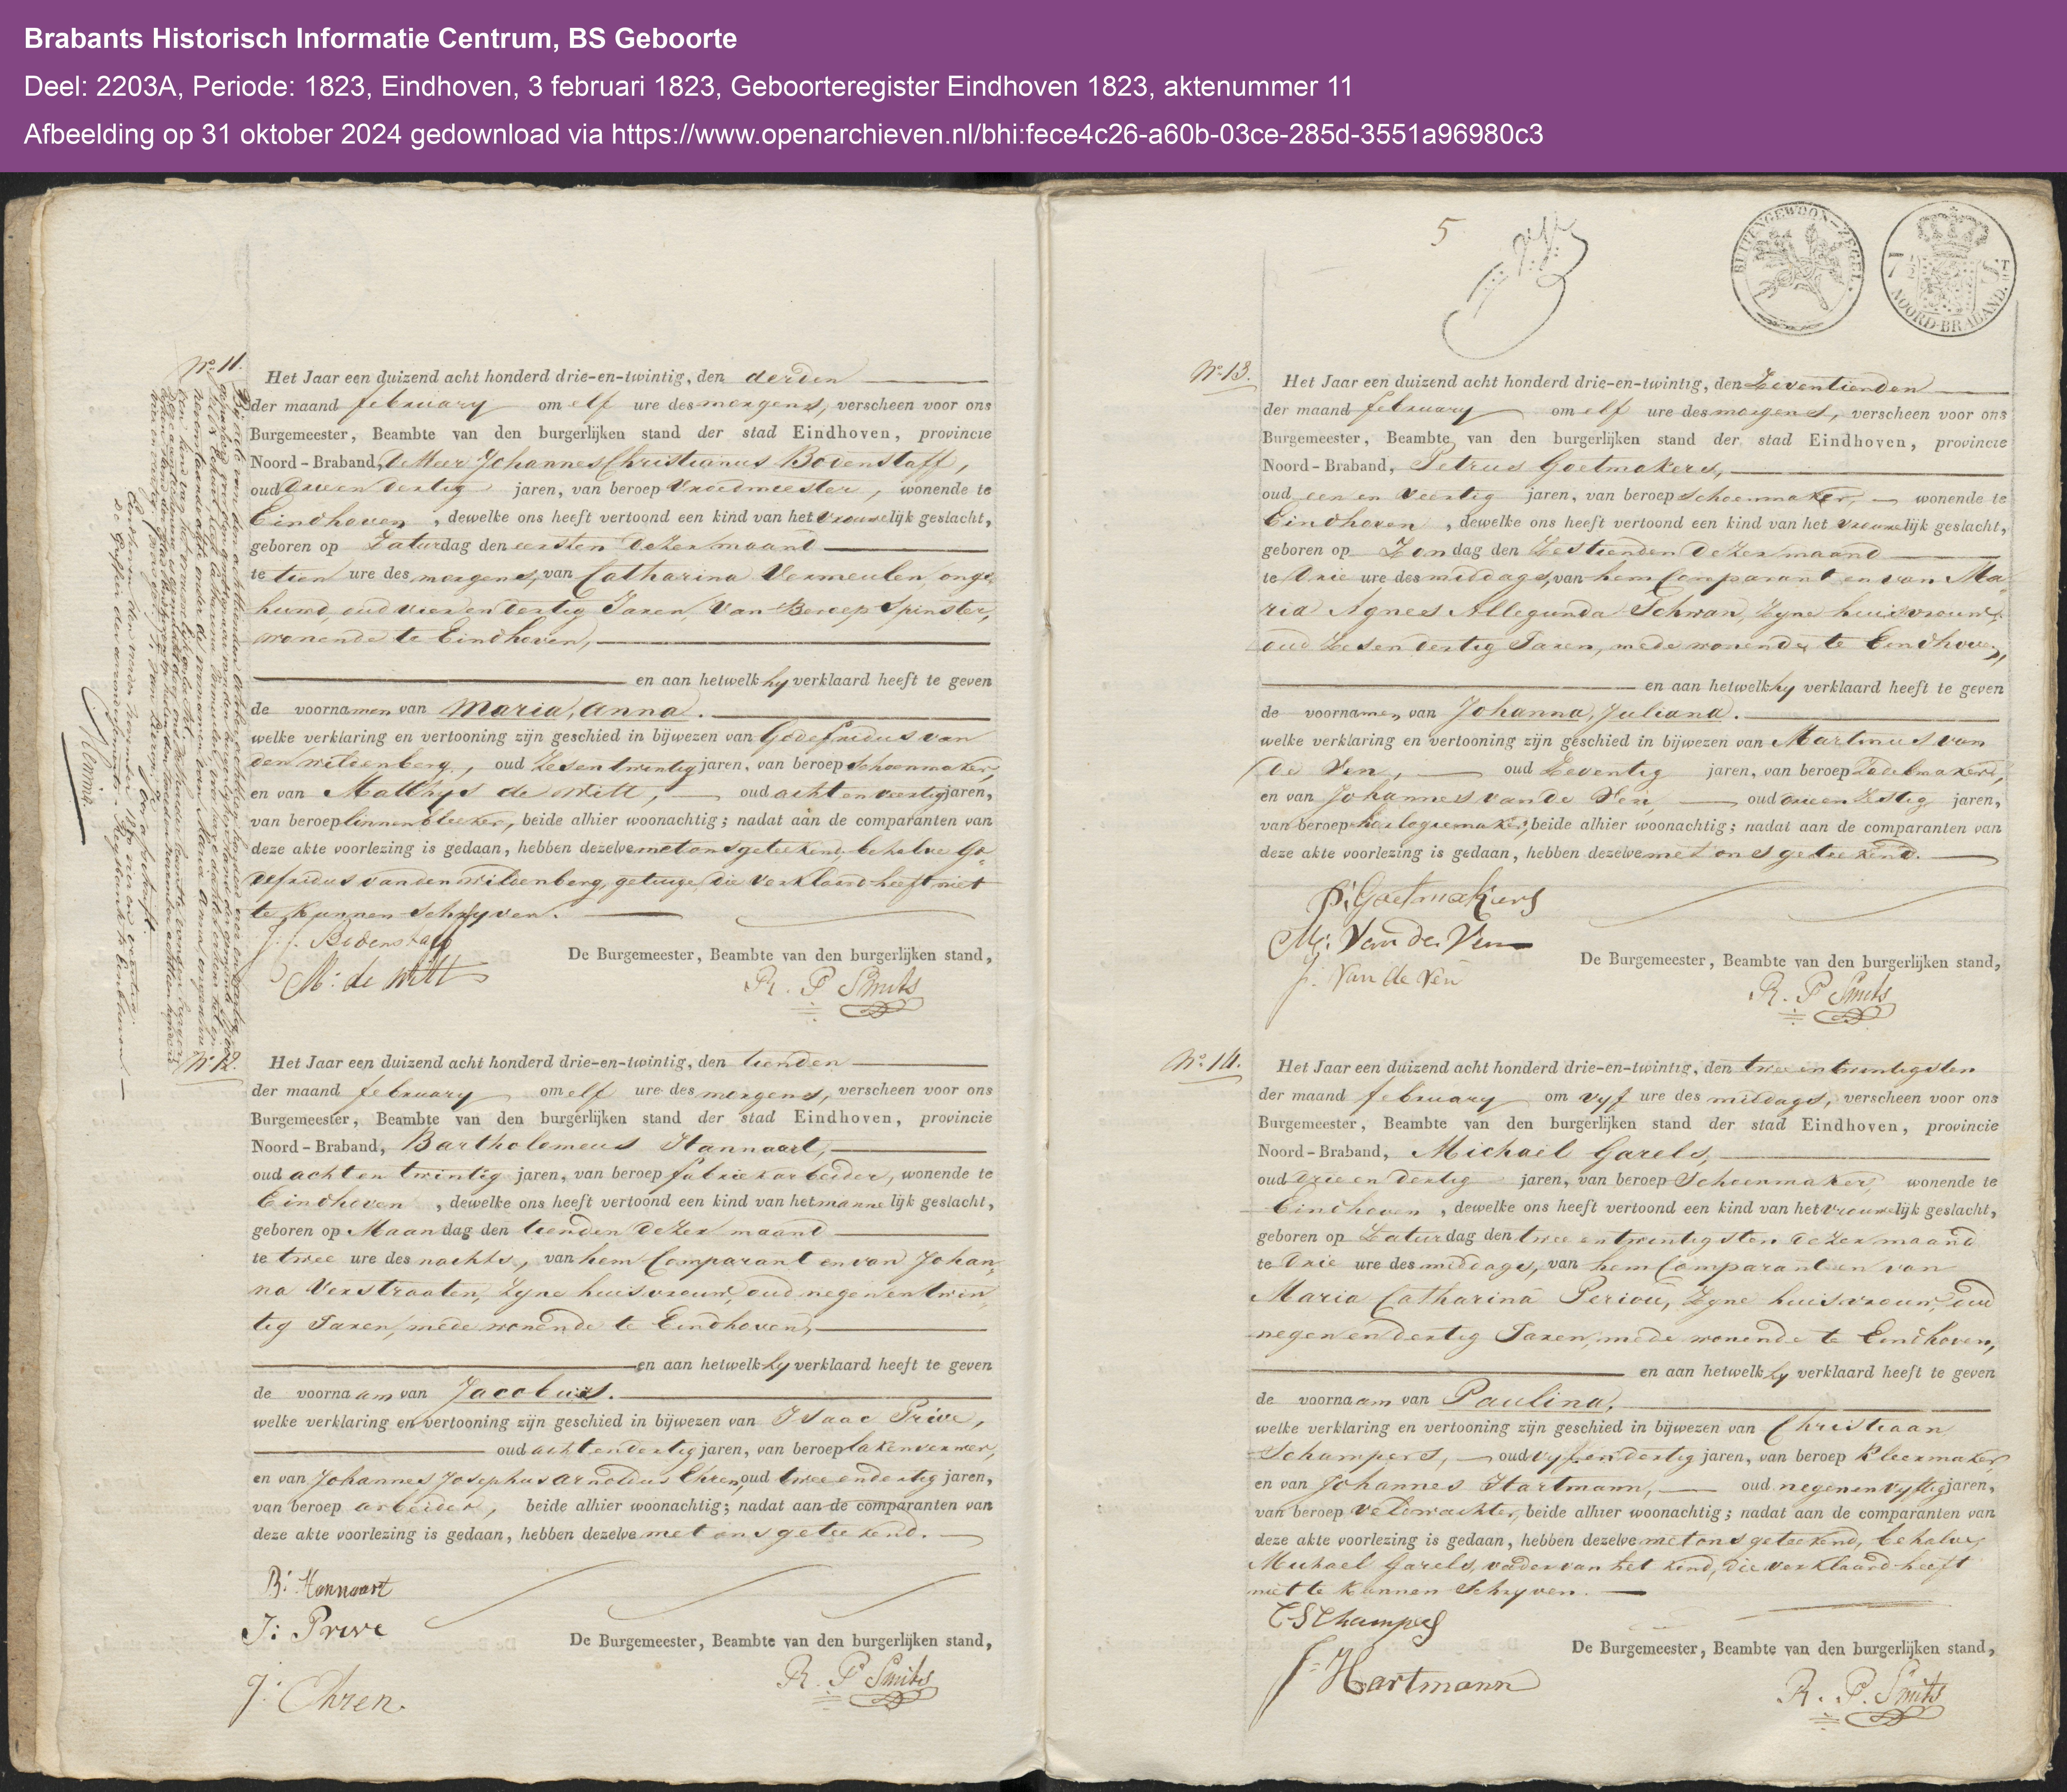 Brabants Historisch Informatie Centrum, BS Geboorte
Deel: 2203A, Periode: 1823, Eindhoven, 3 februari 1823, Geboorteregister Eindhoven 1823, aktenummer 11
Afbeelding op 31 oktober 2024 gedownload via https://www.openarchieven.nl/bhi:fece4c26-a60b-03ce-285d-3551a96980c3
No. 11.
Het Jaar een duizend acht honderd drie-en-twintig, den derden
der maand february om elf ure des morgens, verscheen voor ons
Burgemeester, Beambte van den burgerlijken stand der stad Eindhoven, provincie
Noord-Braband, de Heer Johannes Christianus Bodenstaff,
oud drie en dertig jaren, van beroep vroedmeester, wonende te
Eindhoven, dewelke ons heeft vertoond een kind van het vrouwelijk geslacht,
geboren op Zaturdag den eersten dezer maand
te tien ure des morgens, van Catharina Vermeulen, onge-
huwd, oud vier en dertig Jaren, van Beroep Spinster,
wonende te Eindhoven,
en aan hetwelk hy verklaard heeft te geven
de voornamen van Maria, Anna.
welke verklaring en vertooning zijn geschied in bijwezen van Godefridus van
den Wildenberg, oud Zes en twintig jaren, van beroep schoenmaker,
en van Matthys de Witt, oud acht en veertig jaren,
van beroep linnenbleeker, beide alhier woonachtig; nadat aan de comparanten van
deze akte voorlezing is gedaan, hebben dezelve met ons geteekend, behalve Go-
defridus van den Wildenberg, getuige, die verklaard heeft niet
te kunnen schryven.
Bodenstaff
M: de Witt
De Burgemeester, Beambte van den burgerlijken stand,
R. P Smits
No. 12.
Het Jaar een duizend acht honderd drie-en-twintig, den tienden
der maand february om elf ure des morgens, verscheen voor ons
Burgemeester, Beambte van den burgerlijken stand der stad Eindhoven, provincie
Noord-Braband, Bartholomeus Hannaart,
oud acht en twintig jaren, van beroep fabriekarbeider, wonende te
Eindhoven, dewelke ons heeft vertoond een kind van het mannelijk geslacht,
geboren op Maandag den tienden dezer maand
te twee ure des nachts, van hem Comparant en van Johan-
na Verstraaten, Zyne huisvrouw, oud negen en twin-
tig Jaren, mede wonende te Eindhoven,
en aan hetwelk hy verklaard heeft te geven
de voornaam van Jacobus.
welke verklaring en vertooning zijn geschied in bijwezen van Isaac Prive,
oud acht en dertig jaren, van beroep lakenverwer,
en van Johannes Josephus Arnoldus Ehren, oud twee en dertig jaren,
van beroep arbeider, beide alhier woonachtig; nadat aan de comparanten van
deze akte voorlezing is gedaan, hebben dezelve met ons geteekend.
B: Hannaart
I: Prive
J: Ehren.
De Burgemeester, Beambte van den burgerlijken stand,
R. P Smits
5
BUITENGEWOON-ZEGEL.
NOORD-BRABAND.
No. 13.
Het Jaar een duizend acht honderd drie-en-twintig, den Zeventienden
der maand february om elf ure des morgens, verscheen voor ons
Burgemeester, Beambte van den burgerlijken stand der stad Eindhoven, provincie
Noord-Braband, Petrus Goetmakers,
oud een en veertig jaren, van beroep schoenmaker, wonende te
Eindhoven, dewelke ons heeft vertoond een kind van het vrouwelijk geslacht,
geboren op Zondag den Zestienden dezer maand
te drie ure des middags, van hem Comparant en van Ma-
ria Agnes Allegunda Schwan, Zyne huisvrouw,
oud Zes en dertig Jaren, mede wonende te Eindhoven,
en aan hetwelk hy verklaard heeft te geven
de voornamen van Johanna, Juliana.
welke verklaring en vertooning zijn geschied in bijwezen van Martinus van
de Ven, oud Zeventig jaren, van beroep Zadelmaker,
en van Johannes van de Ven, oud drie en Zestig jaren,
van beroep horlogiemaker, beide alhier woonachtig; nadat aan de comparanten van
deze akte voorlezing is gedaan, hebben dezelve met ons geteekend.
P: Goetmakers
M: Van de Ven
J: Van de Ven
De Burgemeester, Beambte van den burgerlijken stand,
R. P Smits
No. 14.
Het Jaar een duizend acht honderd drie-en-twintig, den twee en twintigsten
der maand february om vyf ure des middags, verscheen voor ons
Burgemeester, Beambte van den burgerlijken stand der stad Eindhoven, provincie
Noord-Braband, Michael Garels,
oud drie en dertig jaren, van beroep Schoenmaker, wonende te
Eindhoven, dewelke ons heeft vertoond een kind van het vrouwelijk geslacht,
geboren op Zaturdag den twee en twintigsten dezer maand
te drie ure des middags, van hem Comparant en van
Maria Catharina Periou, Zyne huisvrouw, oud
negen en dertig Jaren, mede wonende te Eindhoven,
en aan hetwelk hy verklaard heeft te geven
de voornaam van Paulina,
welke verklaring en vertooning zijn geschied in bijwezen van Christiaan
Schampers, oud vyf en dertig jaren, van beroep kleermaker,
en van Johannes Hartmann, oud negen en vyftig jaren,
van beroep veldwachter, beide alhier woonachtig; nadat aan de comparanten van
deze akte voorlezing is gedaan, hebben dezelve met ons geteekend, behalve
Michael Garels, vader van het kind, die verklaard heeft
niet te kunnen schryven.
C Schampers
J: Hartmann
De Burgemeester, Beambte van den burgerlijken stand,
R. P. Smits